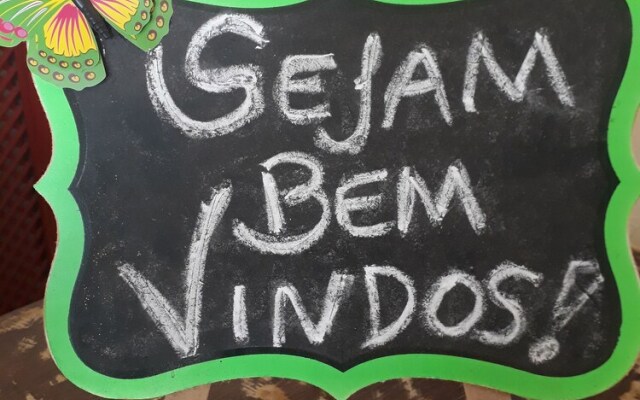 SEJAM
BEM
VINDOS!